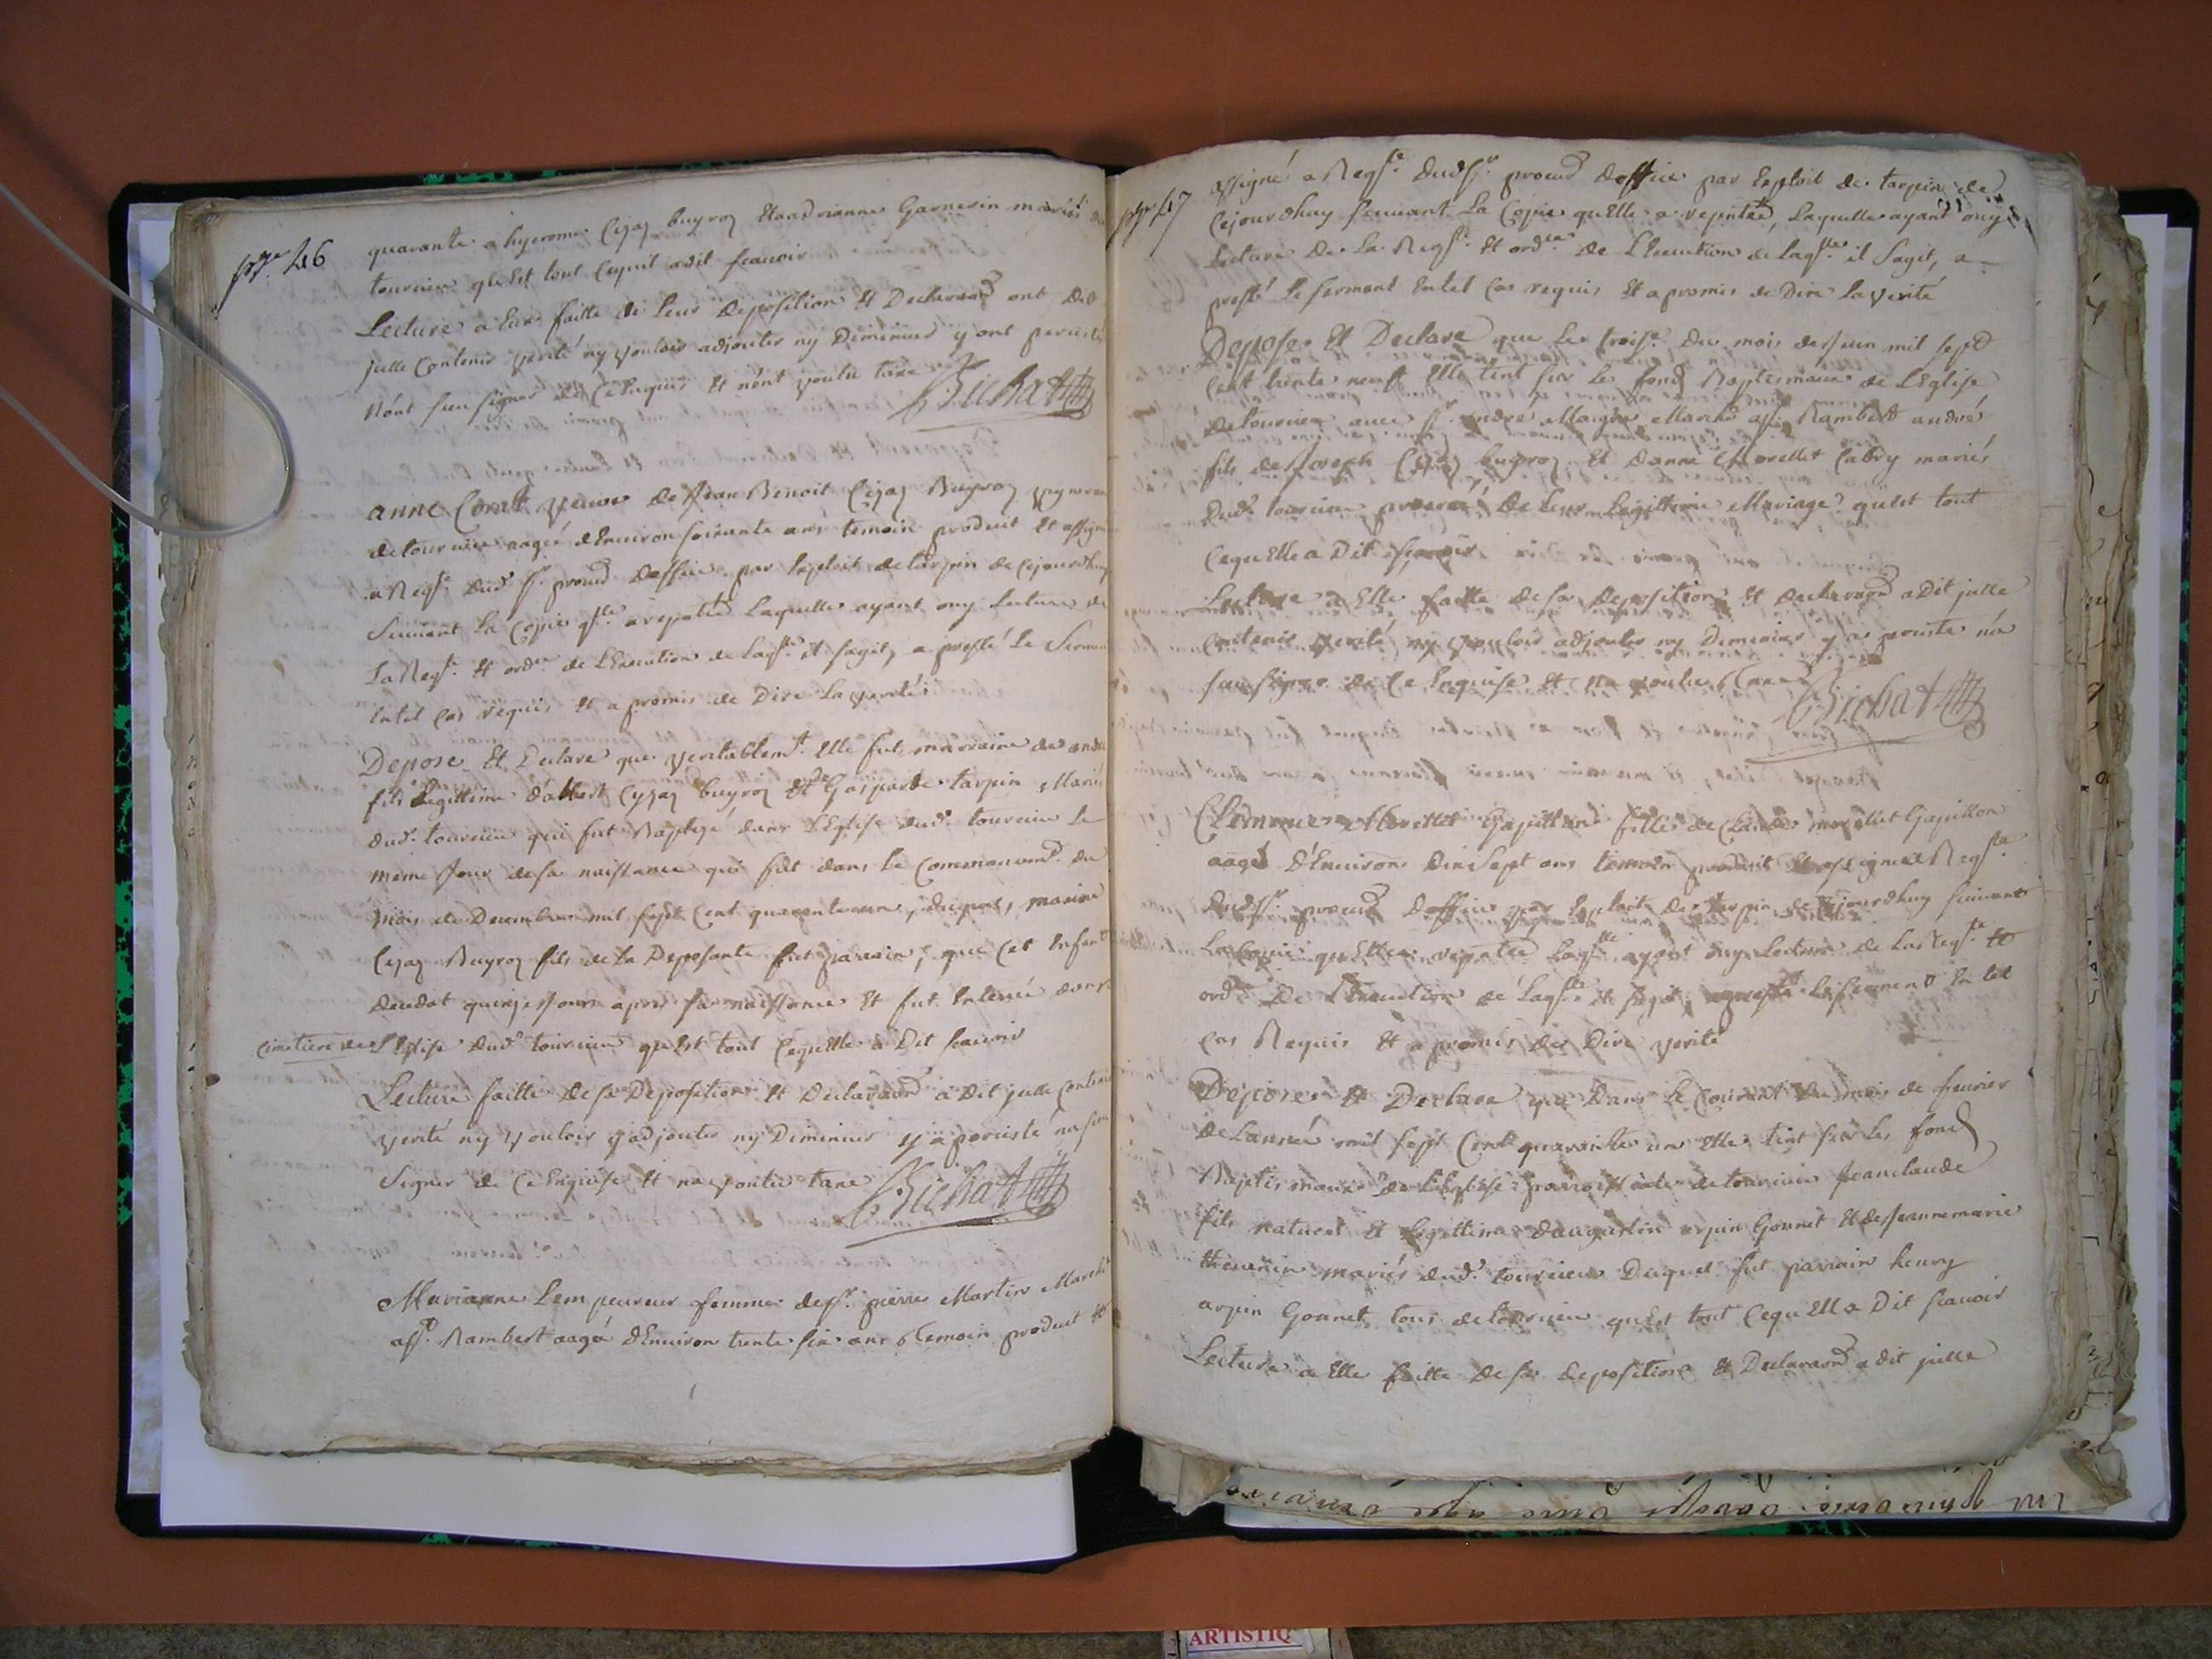 pge 46
quarante a hyerome Cijaz buyroz et aadrianne Garnerin mariés du
tournier qu'est tout cequil a dit scauoir
Lecture a Eux faitte de leur deposition et Declaraond ont dit
jcelle Contenir verité ny vouloir adjouter ny Diminuer y ont percisté
n'ont sceu signer de ce Enquis et n'ont voulu taxe
Bichat
anne Comb veuve de Jean Benoit Cijaz Buyroz
de tournier aagée d'Enuiron soixante ans temoin produit et assigné
a Reqse dud. sr procurd d'office par Exploit de tarpin de cejourdhuy
suivant la Copie qlle a repntée Laquelle ayant ouy lecture de
la Reqse et ordce de L'Execution de laqlle il sagit, a presté le serment
En tel cas requis et a promis de Dire la verité
Depose et Declare que veritablemt Elle fut marraine de andré
fils Legittime d'albert Cyjaz buyroz et Gasparde tarpin Mariés
dud. tournier qui fut Baptisé dans L'Eglise dud. tournier le
même Jour de sa naissance qui fut dans le Commancemt du
mois de Decembre mil sept Cent quarante un, duquel, maxime
Cijaz Buyroz fils de la Deposante fut parrain, que Cet Enfant
deceda quinze Jours apres sa naissance et fut Enterré dans
cimetiere de L'Eglise dud. tournier qu'est tout cequ'Elle a Dit scauoir
Lecture faitte de sa Deposition et Declaraond a Dit jcelle Contenir
verité ny vouloir y adjouter ny Diminuer y a perciste na sceu
Signer de Ce Enquise et na voulu taxe
Bichat
Marianne Lempereur femme de sr pierre Martin Marchd
asst Rambert aagée d'Enuiron trente six ans temoin produit et
pge 47
assigné a Reqse dud. sr procurd d'office par Exploit de tarpin de
Cejourdhuy suiuant la Copie qu'Elle a repntée, laquelle ayant ouy
lecture de la Reqse et ordce de L'Execution de laqlle il sagit, a
presté le serment En tel Cas requis et a promis de Dire la verité
Depose et Declare que le troise du mois de Juin mil sept
Cent trente neuf Elle tint sur les fonds Baptismaux de L'Eglise
de tournier auec sr andré Marchd asst Rambert andré
fils de Joseph Cijaz buyroz et d'anne Morellet Cabry mariés
dud. tournier procréé de leur Legittime Mariage qu'est tout
Cequ'elle a Dit scauoir
Lecture a Elle faitte de sa Deposition et declaraond a Dit jcelle
Contenir verité ny vouloir adjouter ny Diminuer y a perciste n'a
sceu signer de Ce Enquise et na voulu taxe
Bichat
Morellet Gapillon fille de Claude morellet Gapillon
aagé d'Enuiron Dix Sept ans temoin produit et assignée a Reqse
dud. sr procurd d'office par Exploit de tarpin de Cejourdhuy suiuant
la Copie qu'Elle a repntée laqlle ayant ouy Lecture de la Reqse et
ordce De L'Execution de laqlle il sagit, a presté le serment En tel
cas Requis et a promis de Dire verité
Depose et Declare que Dans le Courant du mois de feurier
de Lannée mil sept Cent quarante un Elle tint sur les fonds
Baptismaux de L'Eglise parroissiale de tournier Jeanclaude
fils naturel et Legittime daugustin arpin Gonnet et de Jeannemarie
theuenin mariés dud. tournier Duquel fut parrain henry
arpin Gonnet tous de tournier qu'est tout Cequ'Ell a Dit scauoir
Lecture a Elle faitte de sa deposition et Declaraond a dit jcelle
ARTISTIQ